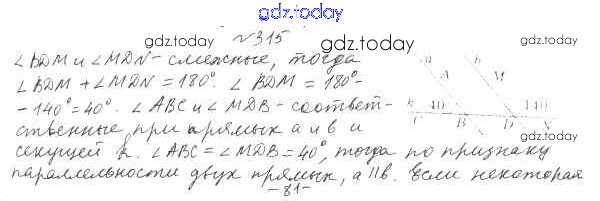 gdz.today
№315
gdz.today gdz.today
∠BDM и ∠MDN - смежные, тогда
∠BDM + ∠MDN = 180°. ∠BDM = 180° -
- 140° = 40°. ∠ABC и ∠MDB - соответ-
ственные, при прямых a и b и
секущей k. ∠ABC = ∠MDB = 40°, тогда по признаку
параллельности двух прямых, a II b. Если некоторая
-81-
a
b
A
M
k
40
140
C
B
D
N
gdz.today
gdz.today